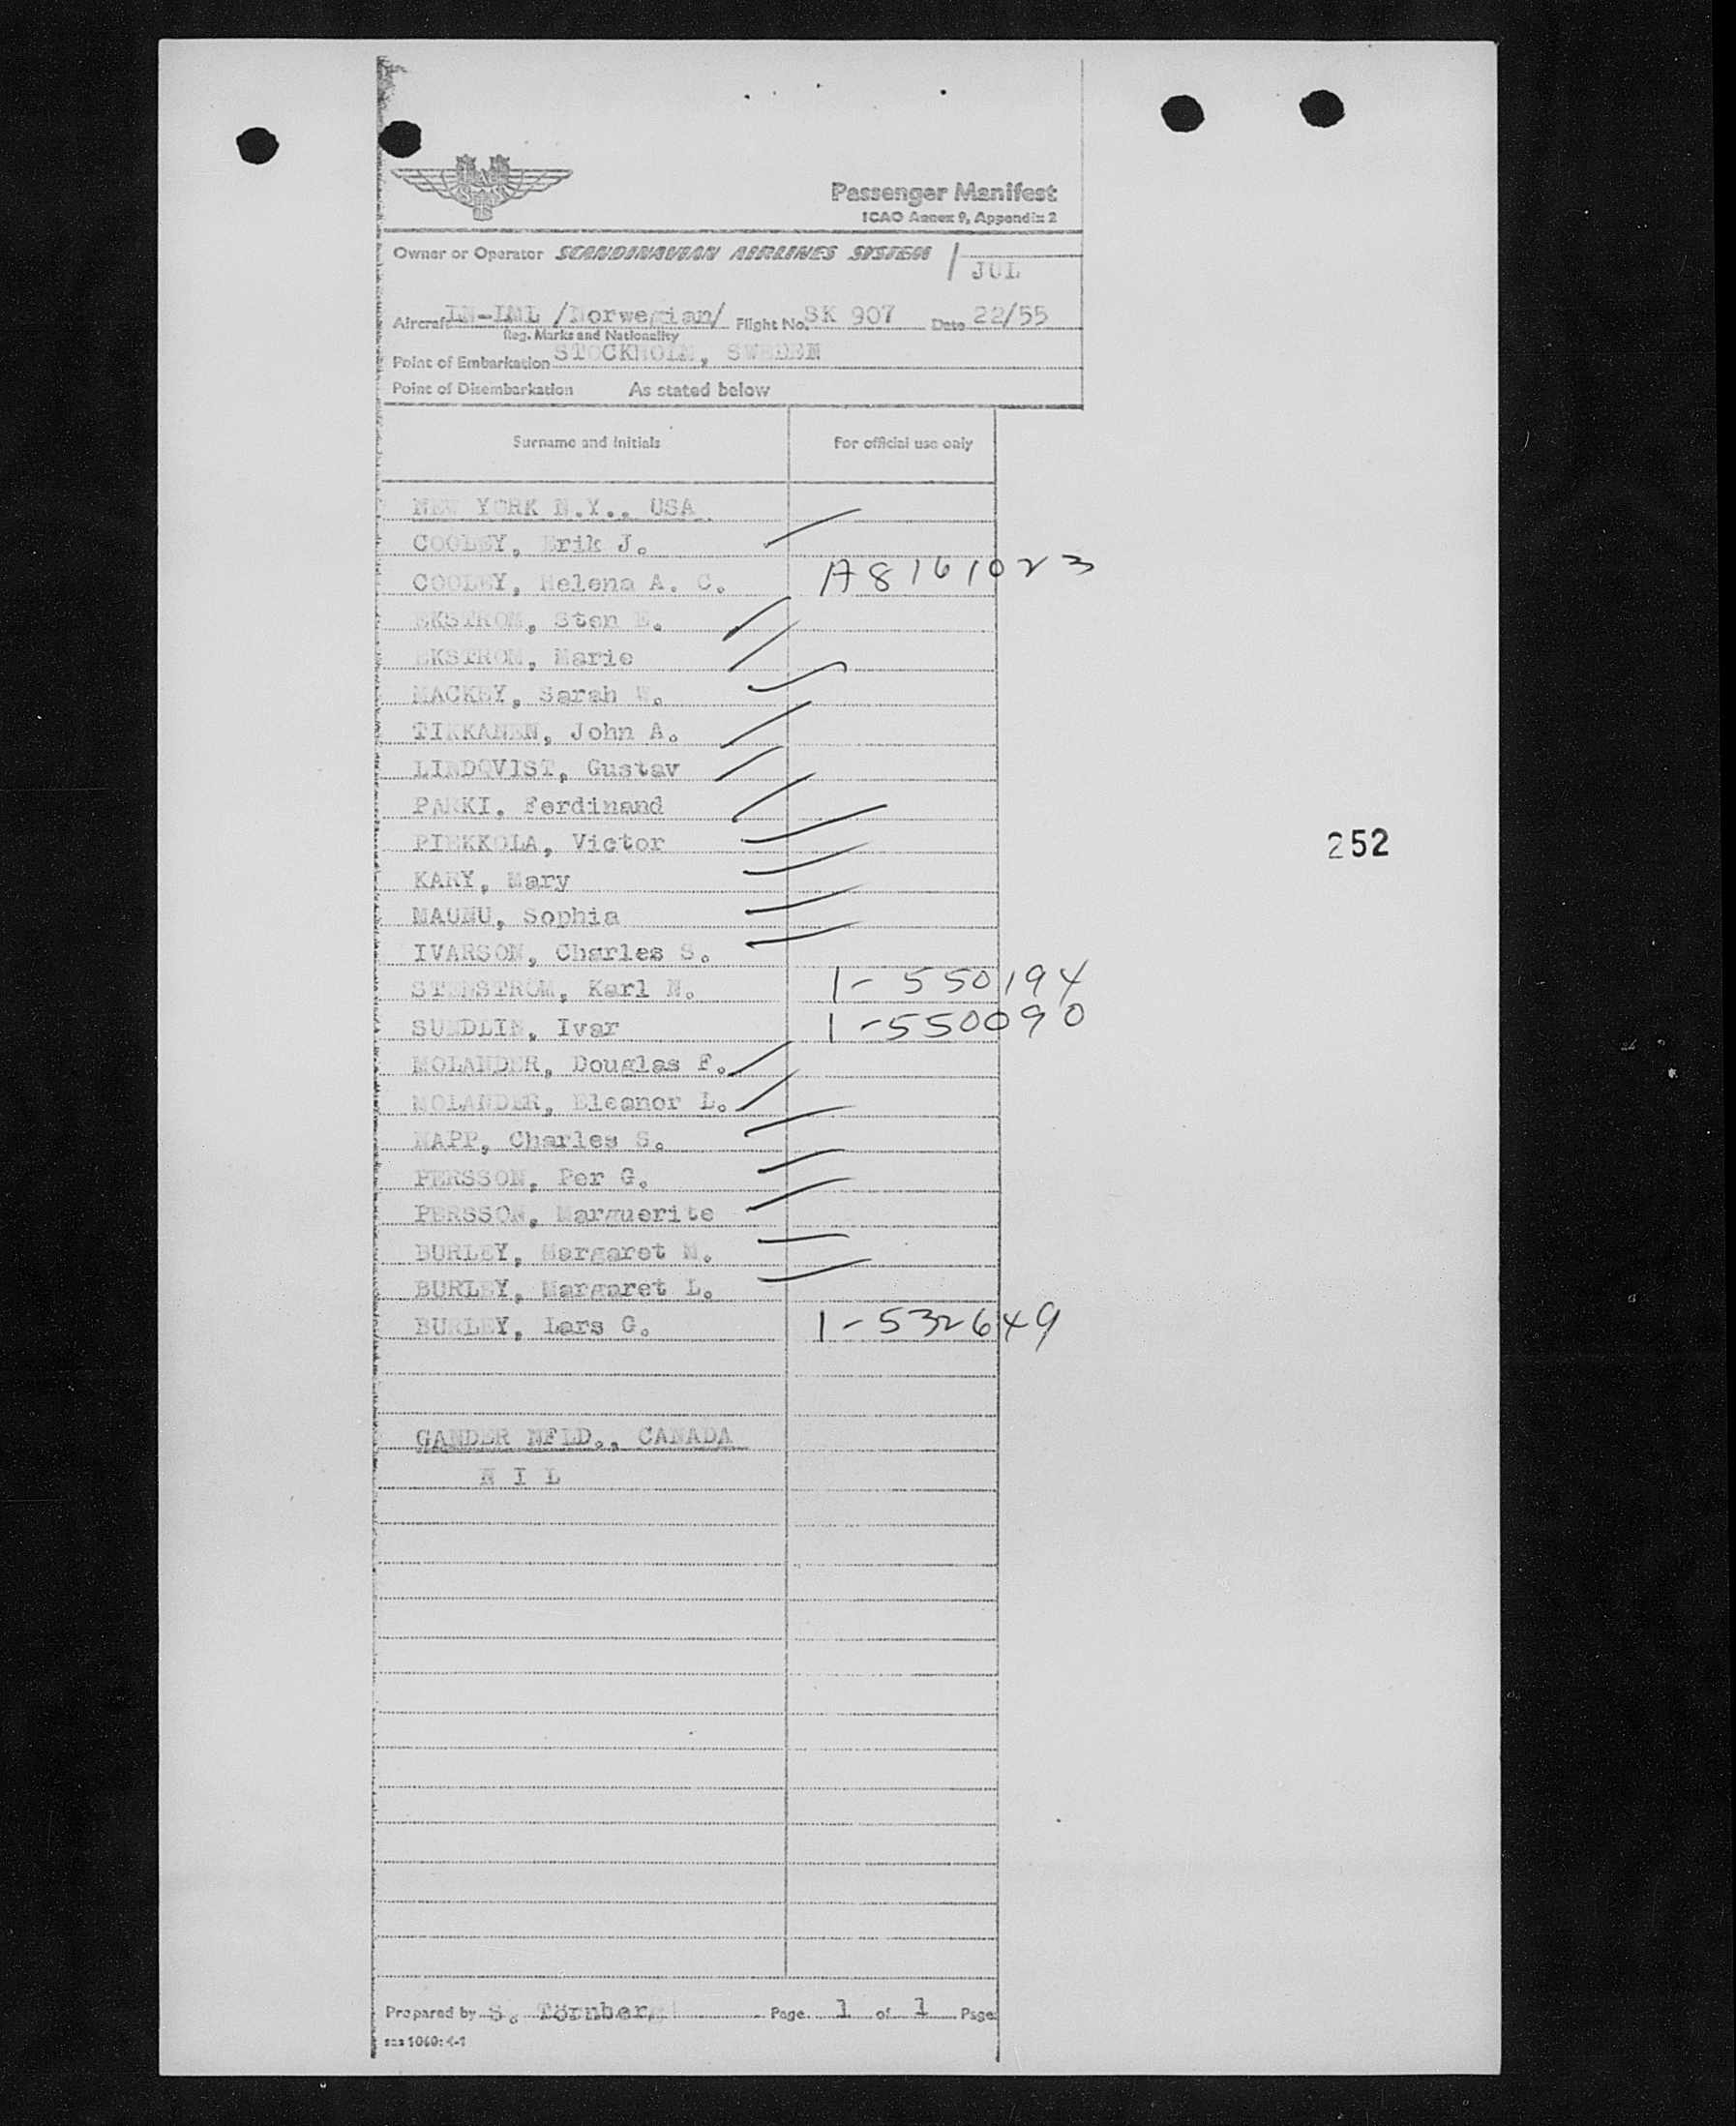 Passenger Manifest
ICAO Annex 9, Appendix 2
Owner or Operator SCANDINAVIAN AIRLINES SYSTEM
JUL
Aircraft LN-LML /Norwegian/ Flight No. SK 907 Date 22/55
Reg. Marks and Nationality
Point of Embarkation STOCKHOLM, SWEDEN
Point of Disembarkation As stated below
Surname and initials For official use only
NEW YORK N.Y., USA
COOLEY, Erik J.
COOLEY, Helena A. C. A8161023
EKSTROM, Sten E.
EKSTROM, Marie
MACKEY, Sarah W.
TIKKANEN, John A.
LINDQVIST, Gustav
PARKI, Ferdinand
PIEKKOLA, Victor
252
KARY, Mary
MAUNU, Sophia
IVARSON, Charles S.
STENSTROM, Karl N. 1-550194
SUNDLIN, Ivar 1-550090
MOLANDER, Douglas F.
MOLANDER, Eleanor L.
NAPP, Charles S.
PERSSON, Per G.
PERSSON, Marguerite
BURLEY, Margaret M.
BURLEY, Margaret L.
BURLEY, Lars G. 1-532649
GANDER NFLD., CANADA
N I L
Prepared by S. Törnberg Page 1 of 1 Page
sas 1060: 4-1